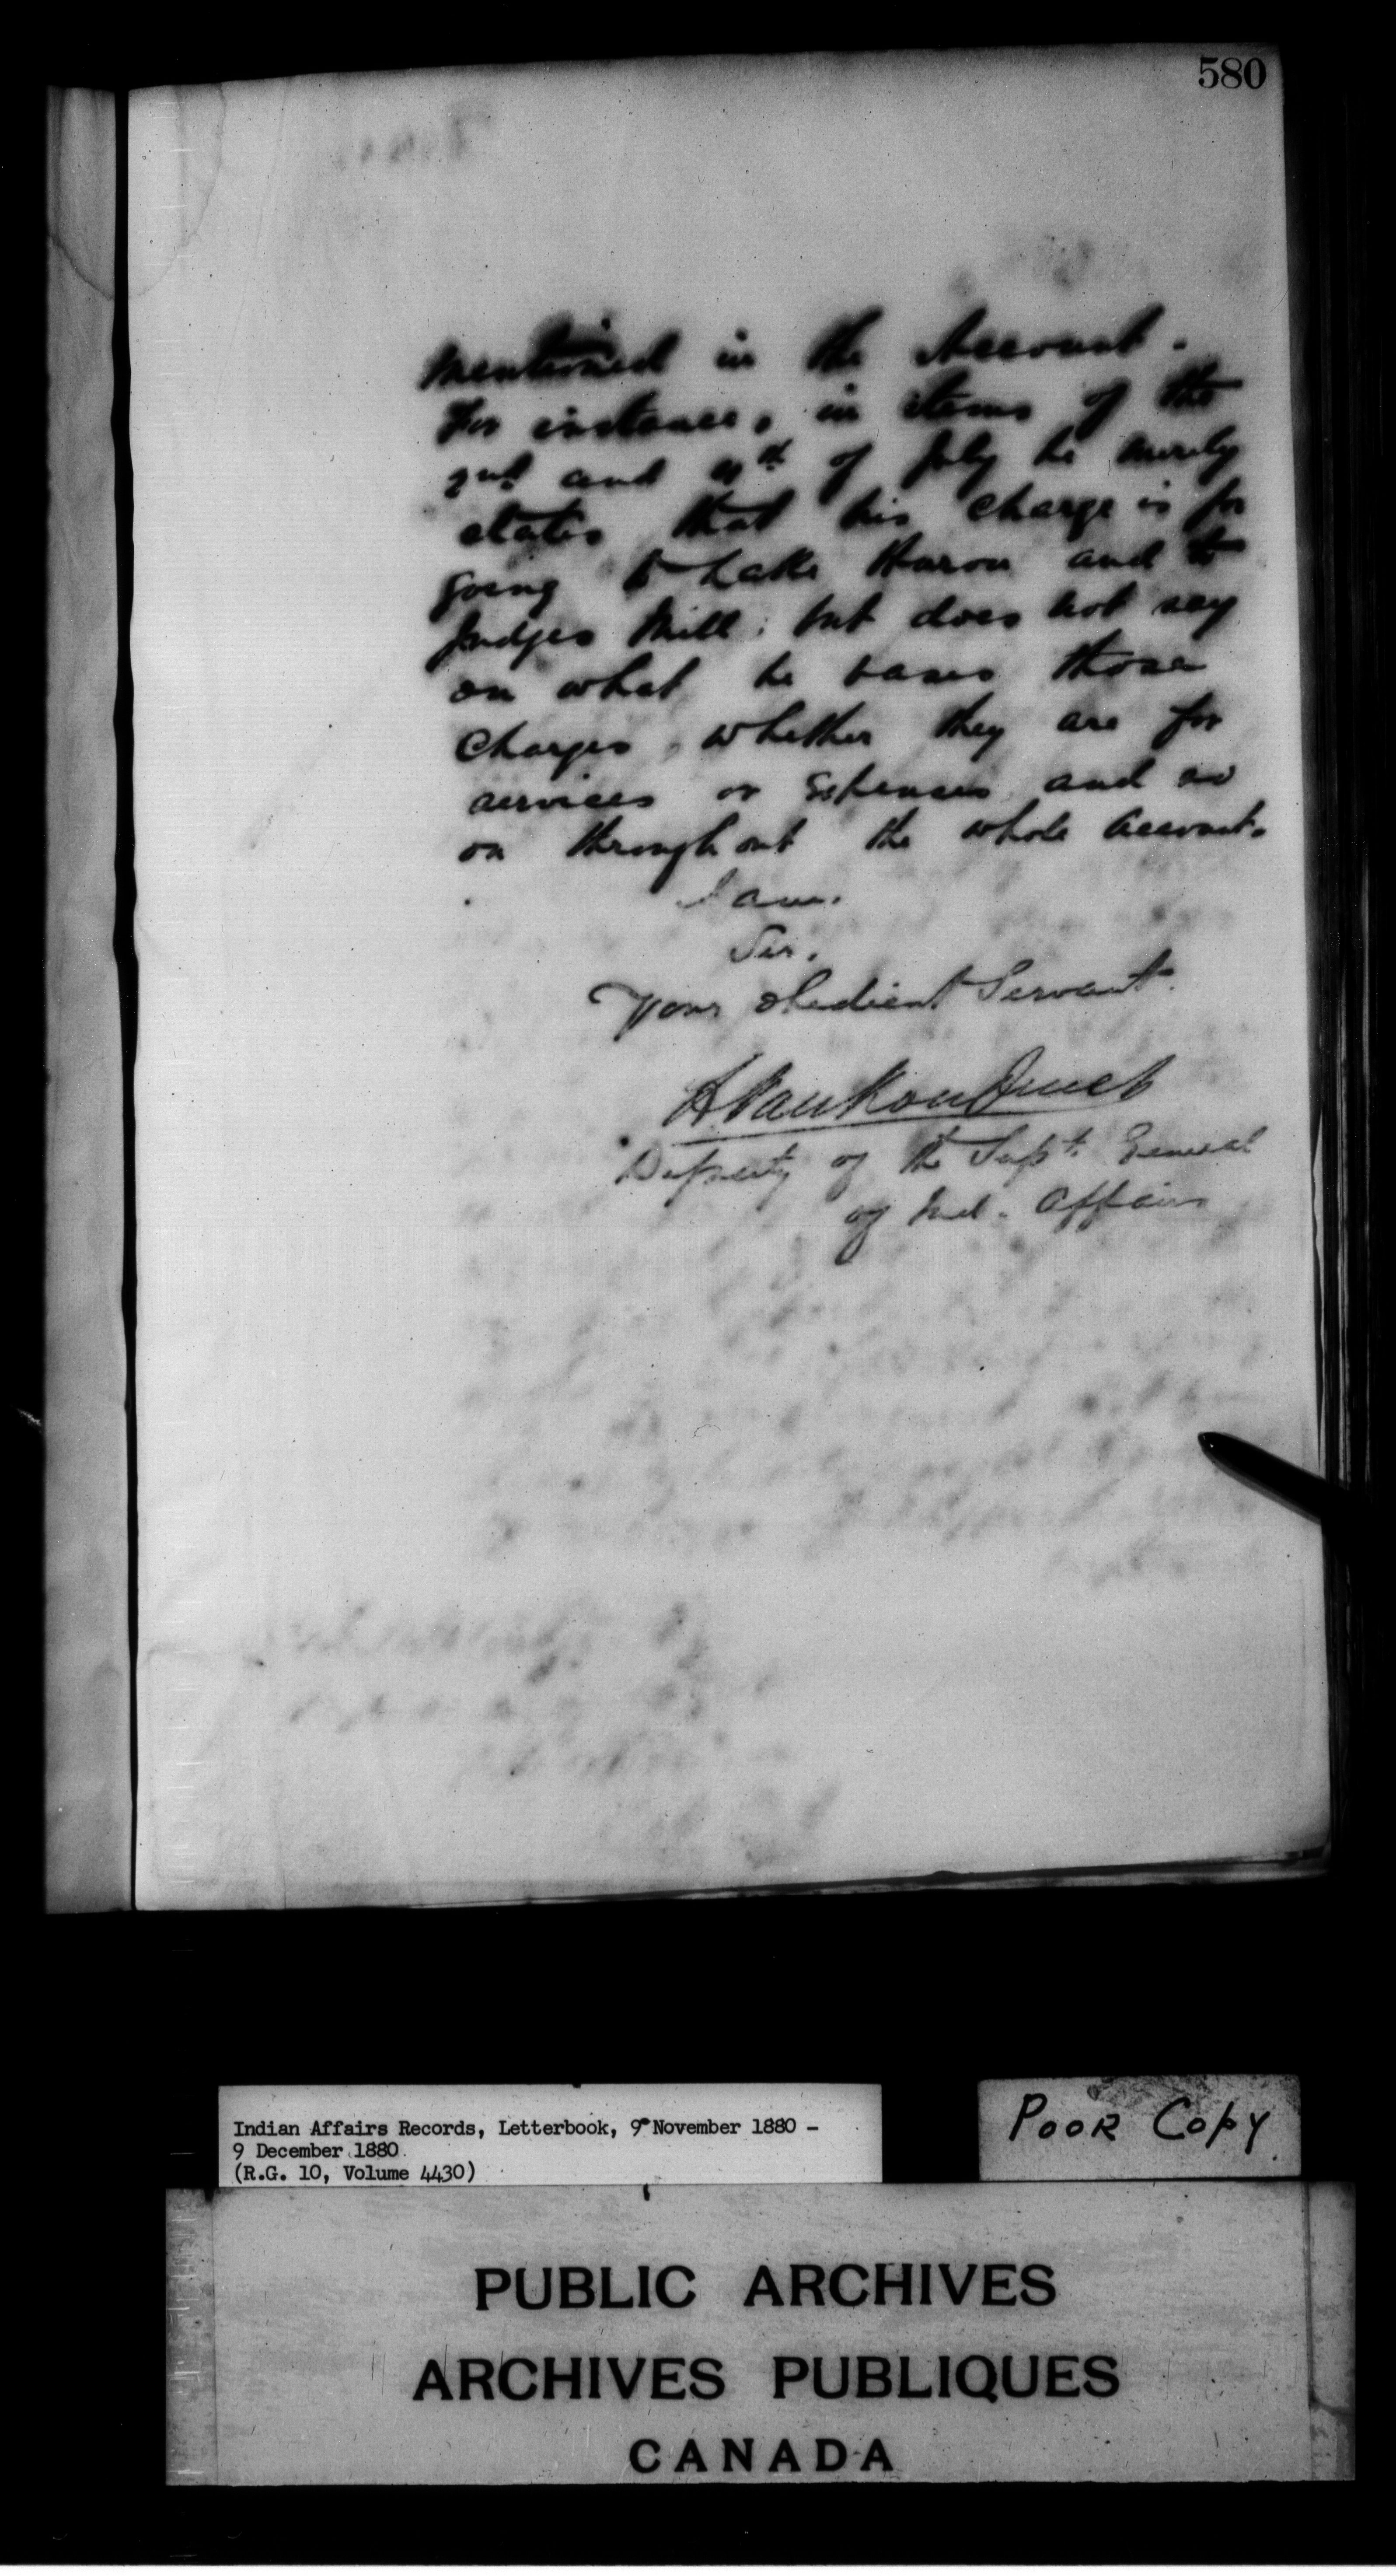 580
mentioned in the Account.
For instance, in items of the
2nd and 4th of July he merely
states that his charge is for
going to Lake Huron and to
Judges Mill; but does not say
on what he bases those
Charges, whether they are for
services or Expenses and so
on throughout the whole account.
I am.
Sir,
Your obedient Servant.
LVanKoughnet
Deputy of the Supt. General
of Ind. Affairs
Indian Affairs Records, Letterbook, 9 November 1880 -
9 December 1880.
(R.G. 10, Volume 4430)
POOR COPY
PUBLIC ARCHIVES
ARCHIVES PUBLIQUES
CANADA